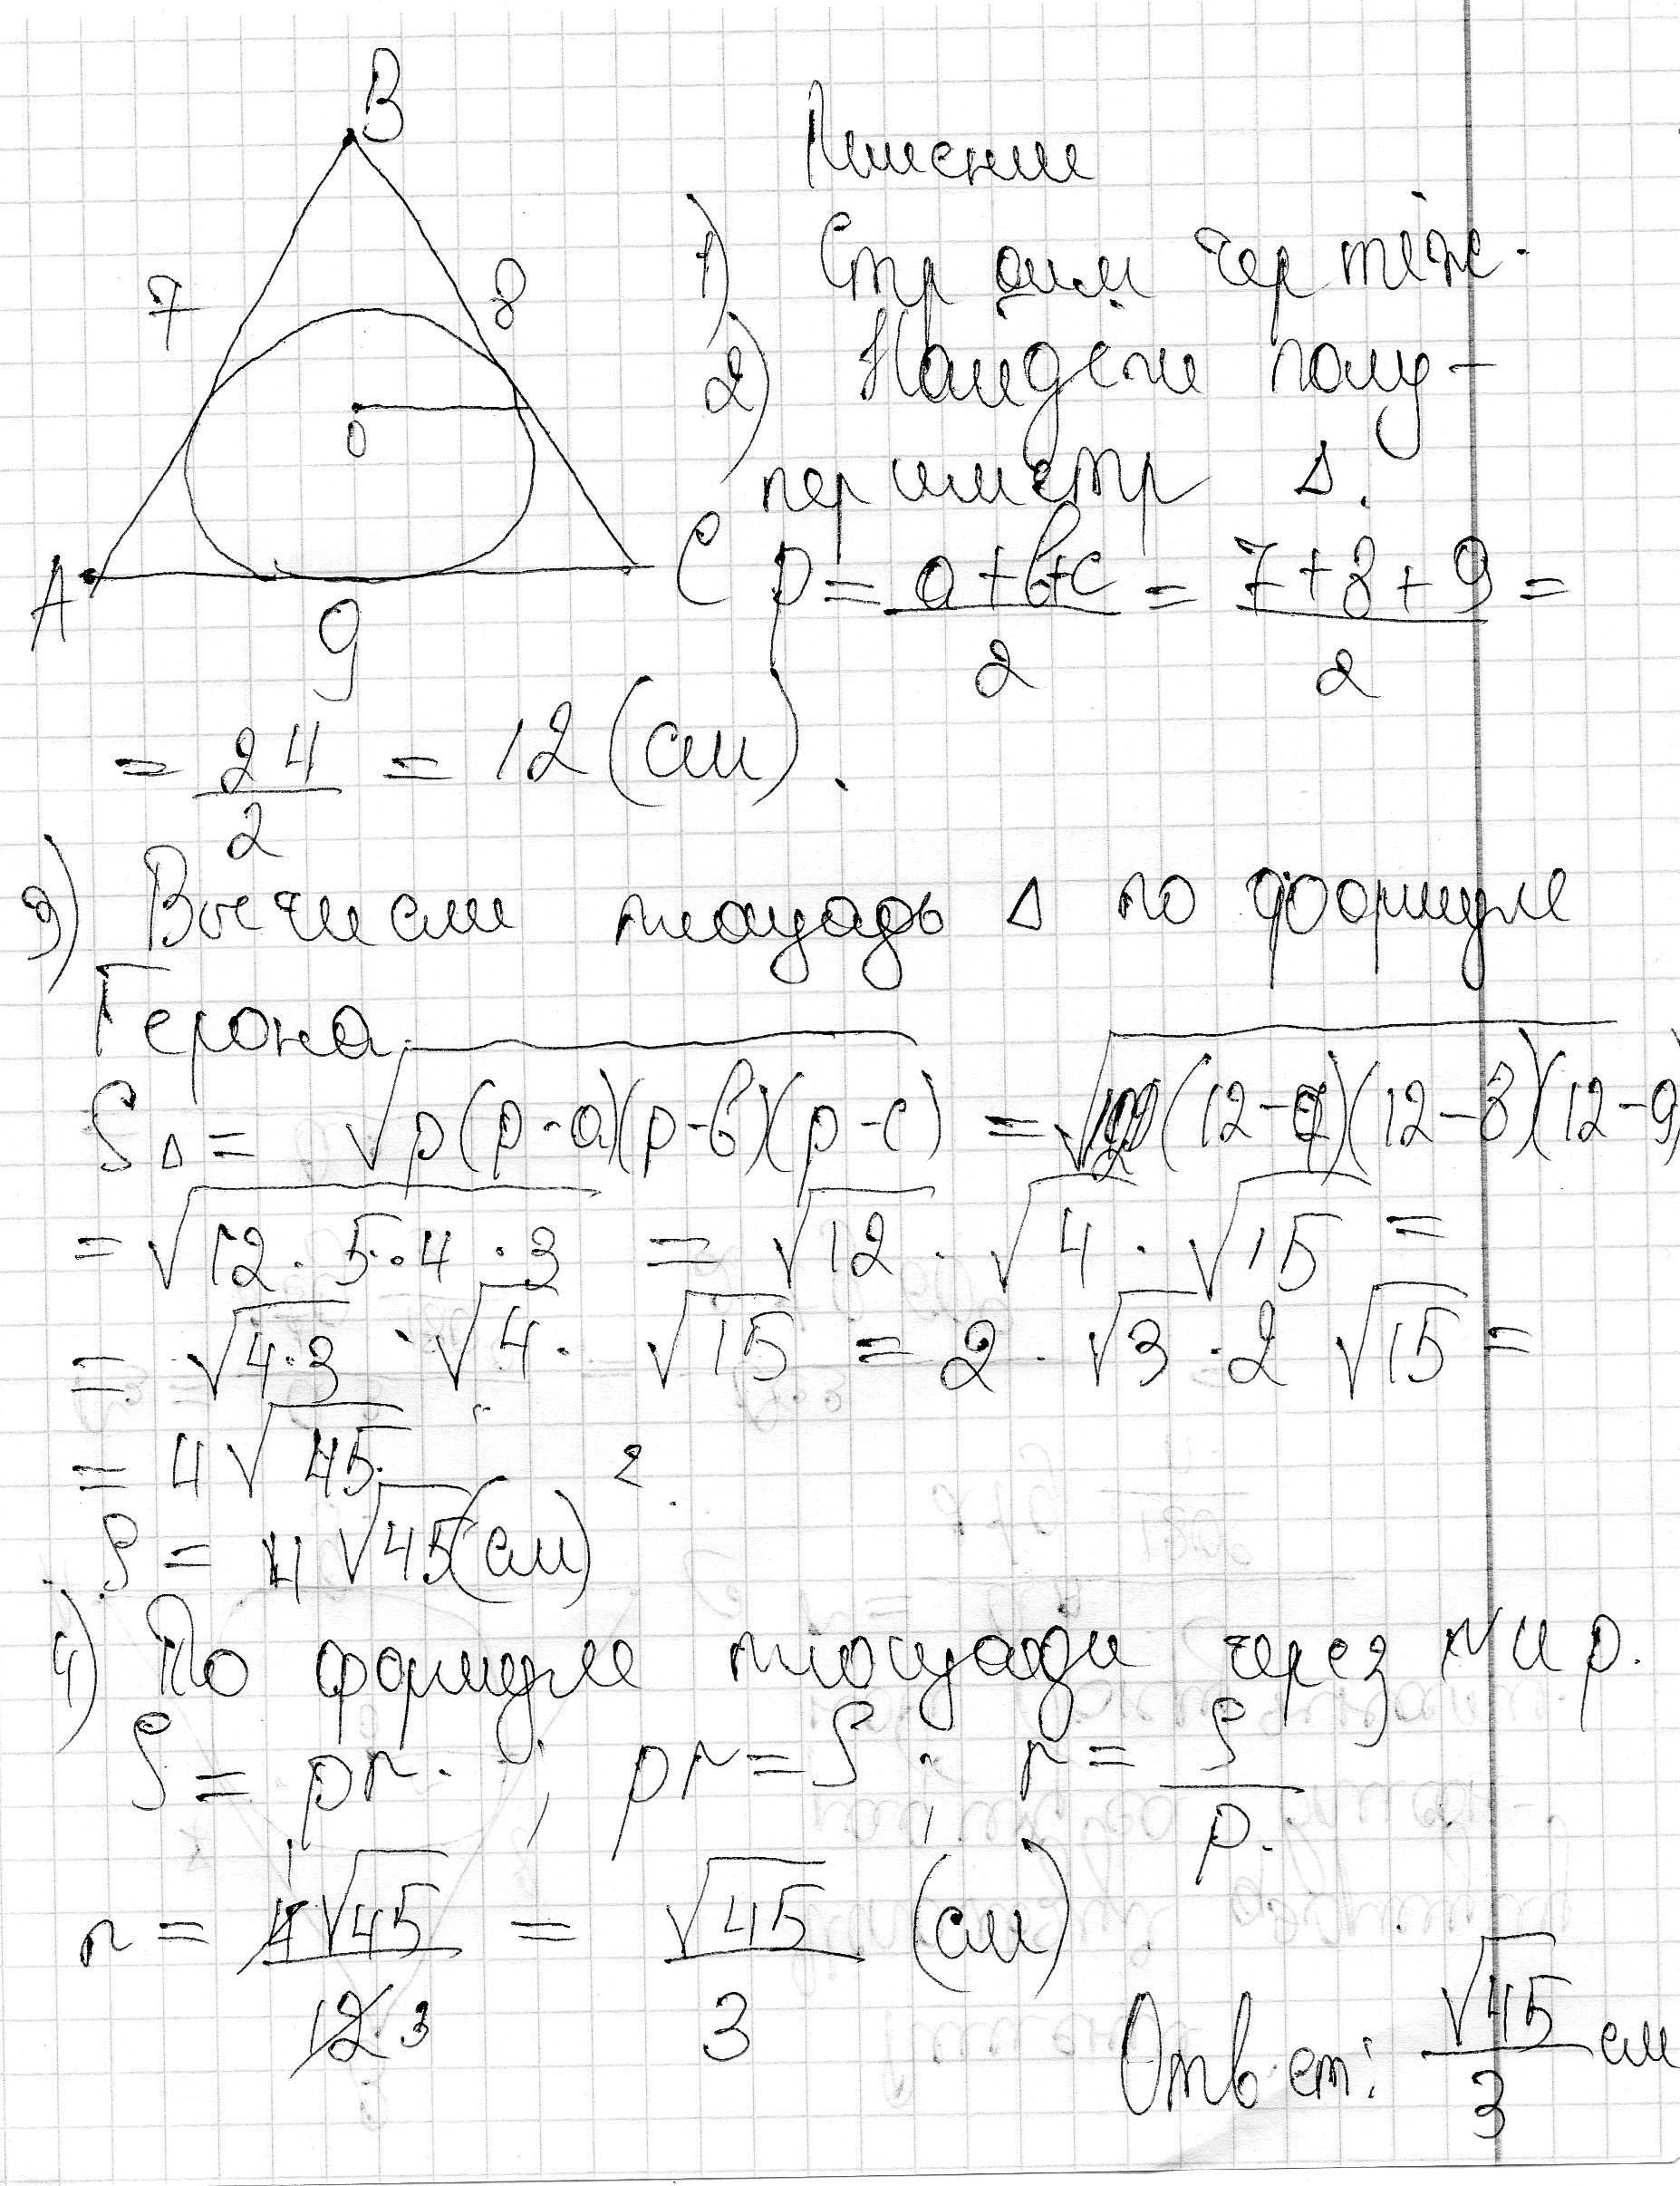 B
Решение
7
8
1) Строим чертёж.
2) Найдём полу-
0
периметр Δ.
A
C
9
p = (a+b+c)/2 = (7+8+9)/2 =
= 24/2 = 12 (см).
3) Вычислим площадь Δ по формуле
Герона.
SΔ = √(p(p-a)(p-b)(p-c)) = √(12(12-7)(12-8)(12-9)
= √(12·5·4·3) = √12 · √4 · √15 =
= √(4·3) · √4 · √15 = 2 · √3 · 2 √15 =
= 4√45
S = 4√45 (см)².
4) По формуле площади через r и p.
S = pr. ; pr = S ; r = S/p.
r = 4√45/12 = √45/3 (см)
1
3
Ответ: √45/3 см